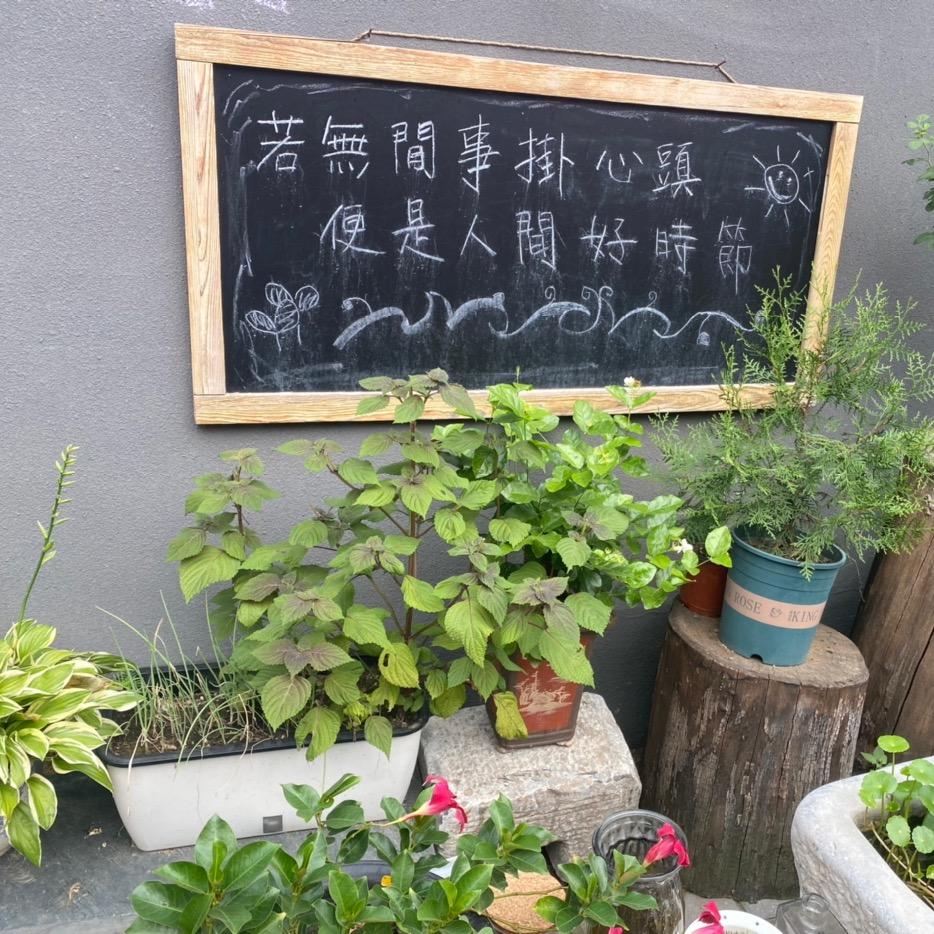 若無閒事掛心頭
便是人間好時節
ROSE & KING